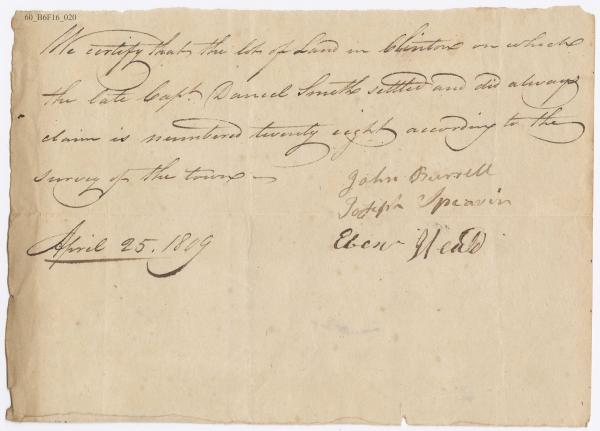 60_B6F16_020
We certify that the lot of Land in Clinton on which
the late Capt. Daniel Smith settled and did always
claim is numbered twenty eight according to the
survey of the town —
John Burrell
Joseph Spearin
April 25. 1809
Eben Heald